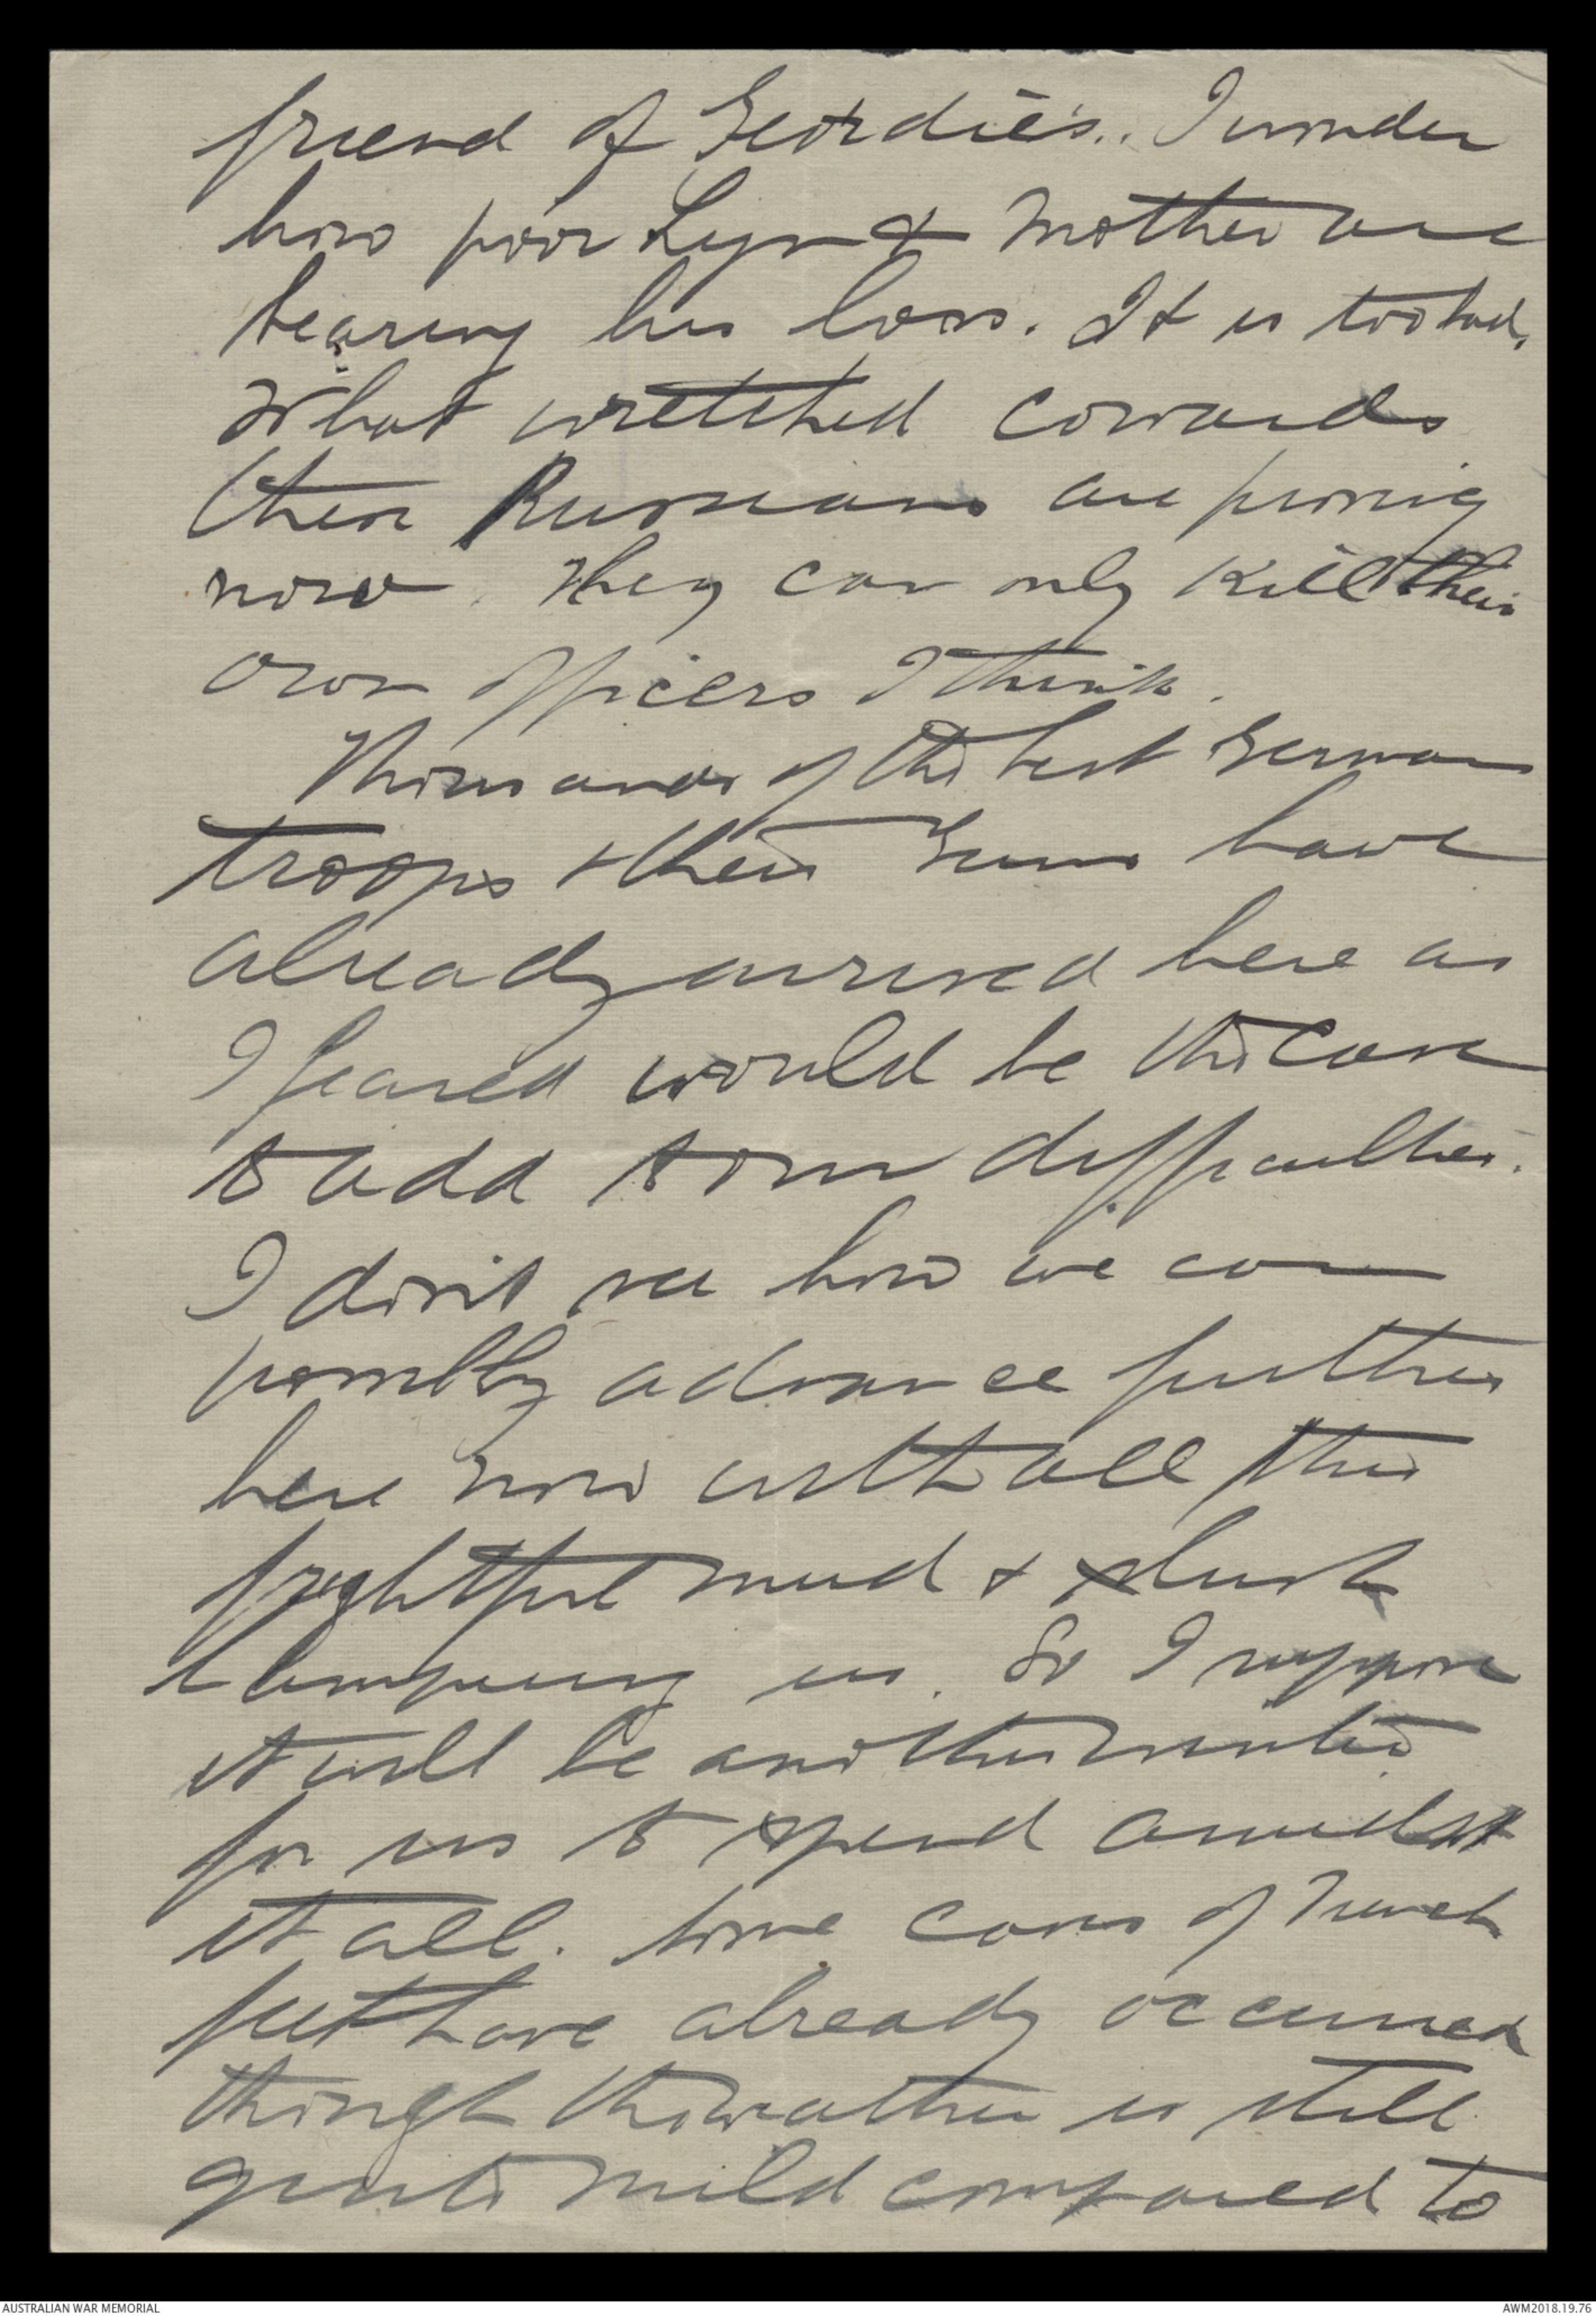 friend of Geordie's.. I wonder
how poor Lyn & Mother are
bearing his loss. It is too bad.
What wretched cowards
these Russians are proving
now. They can only kill their
own officers I think.
Thousands of the best German
troops & their guns have
already arrived here as
I feared would be the case
to add to our difficulties.
I don't see how we can
possibly advance further
here now with all this
frightful mud & slush
hampering us. So I suppose
it will be another winter
for us to spend amidst
it all. Some cases of trench
feet have already occurred
though the weather is still
quite mild compared to
AUSTRALIAN WAR MEMORIAL
AWM2018.19.76